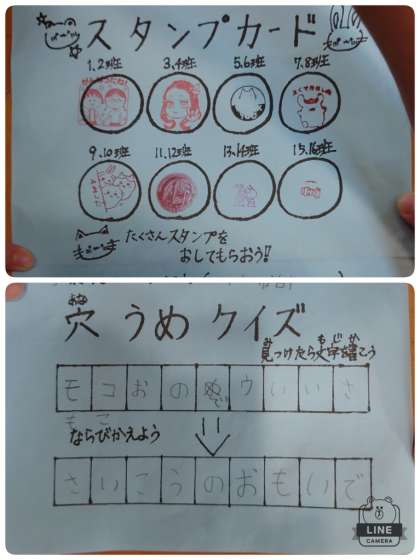 スタンプカード
1.2班 3.4班 5.6班 7.8班
9.10班 11.12班 13.14班 15.16班
たくさんスタンプを
おしてもらおう!!
あな
穴うめクイズ
み もじ か
見つけたら文字を書こう
モコおの で ウいいさ
もこ
ならびかえよう
さいこうのおもいで
LINE
CAMERA